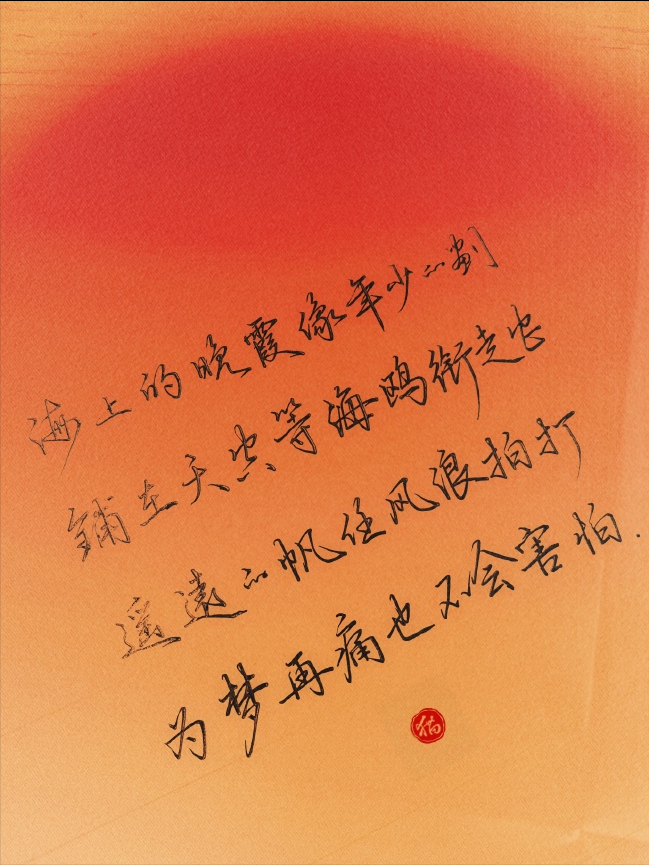 海上的晚霞像年少的劃
鋪在天空等海鸥衔走它
遥遠的帆任风浪拍打
为梦再痛也不会害怕.
猫